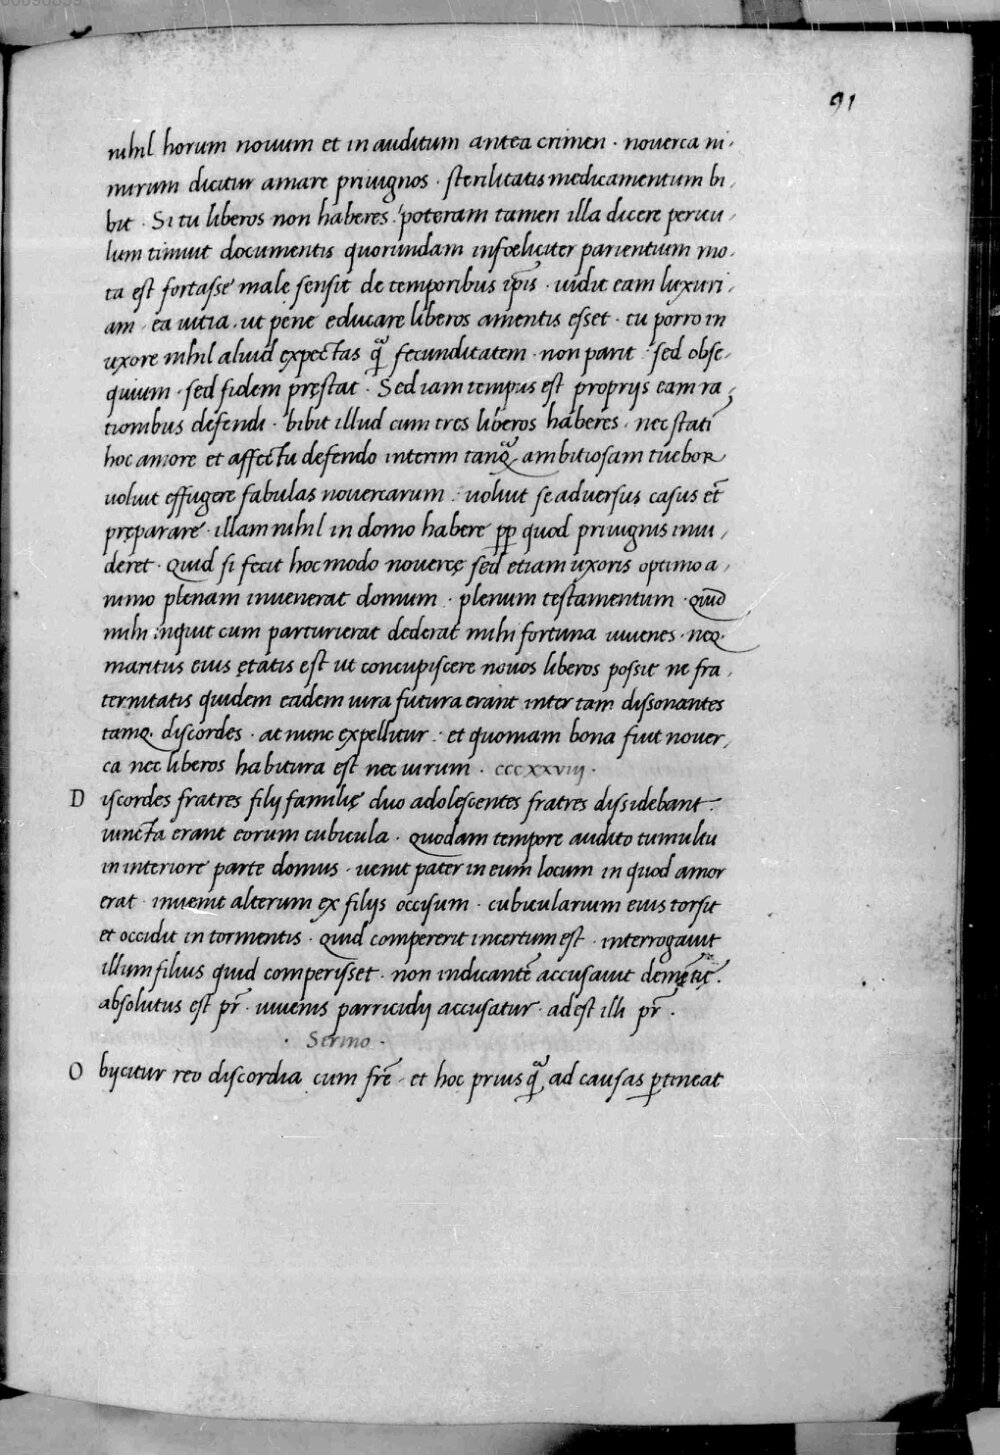 91
nihil horum nouum et in auditum antea crimen · nouerca ni-
mirum dicitur amare priuignos · sterilitatis medicamentum bi-
bit · Si tu liberos non haberes · poteram tamen illa dicere pericu-
lum timuit documentis quorundam infoeliciter parientium mo-
ta est fortasse male sensit de temporibus ip̄is · uidit eam luxuri-
am · ea uitia · ut pene educare liberos amentis esset · tu porro in
uxore nihil aliud expectas qᷓ fecunditatem · non parit : sed obse-
quium · sed fidem pręstat · Sed iam tempus est proprijs eam ra-
tionibus defendi · bibit illud cum tres liberos haberes · nec stati᷑
hoc amore et affectu defendo interim tanqᷓ ambitiosam tuebor
uoluit effugere fabulas nouercarum : uoluit se aduersus casus et̄
pręparare · illam nihil in domo habere pp̄ quod priuignis inui-
deret · Quid si fecit hoc modo nouercę sed etiam uxoris optimo a-
nimo plenam inuenerat domum · plenum testamentum · Quid
mihi inquit cum parturierat dederat mihi fortuna iuuenes · neq·
maritus eius ętatis est ut concupiscere nouos liberos possit ne fra-
ternitatis quidem eadem iura futura erant inter tam dissonantes
tamq· discordes · at nunc expellitur : et quoniam bona fiut nouer-
ca nec liberos habitura est nec uirum · cccxxviij ·
D iscordes fratres filij familię duo adolescentes fratres dissidebant :
iuncta erant eorum cubicula · quodam tempore audito tumultu
in interiore parte domus · uenit pater in eum locum in quod amor
erat · inuenit alterum ex filijs occisum · cubicularium eius torsit
et occidit in tormentis · Quid compererit incertum est · interrogauit
illum filius quid comperisset · non indicantē accusauit demętię ·
absolutus est pr̄ · iuuenis parricidij accusatur · adest illi pr̄ ·
· Sermo ·
O bijcitur reo discordia cum fr̄e · et hoc prius qᷓ ad causas ꝑtineat